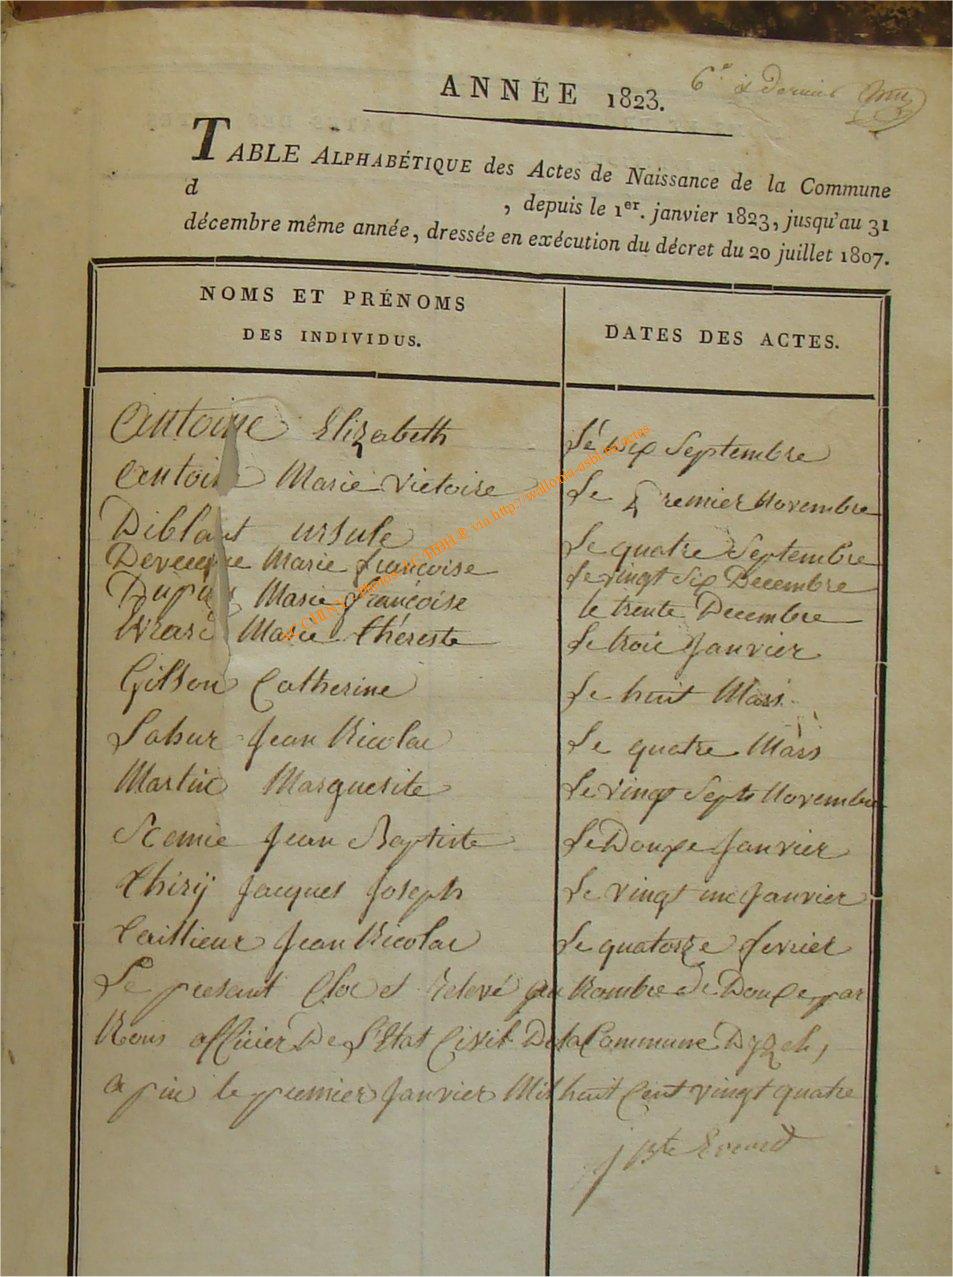 ANNÉE 1823.
TABLE ALPHABÉTIQUE des Actes de Naissance de la Commune
d , depuis le 1er. janvier 1823, jusqu'au 31
décembre même année, dressée en exécution du décret du 20 juillet 1807.
NOMS ET PRÉNOMS
DES INDIVIDUS.
DATES DES ACTES.
Antoine Elizabeth Le six Septembre
Antoine Marie Victoire Le premier Novembre
Diblant ursule Le quatre Septembre
Marie françoise Le vingt six Decembre
Marie françoise le trente Decembre
Marie théreste Le trois Janvier
Gilson Catherine Le huit Mars
Lahur Jean Nicolas Le quatre Mars
Martin Marguerite Le vingt Septe Novembre
Jean Baptiste Le Douze Janvier
thiry Jacques Joseph Le vingt un Janvier
taillieur Jean Nicolas Le quatorze fevrier
Le presant Clos et relevé au Nombre de Douze par
Nous officier De L'Etat Civil De la Commune D'yzel,
le premier Janvier Mil huit Cent vingt quatre
j Bte Evrard